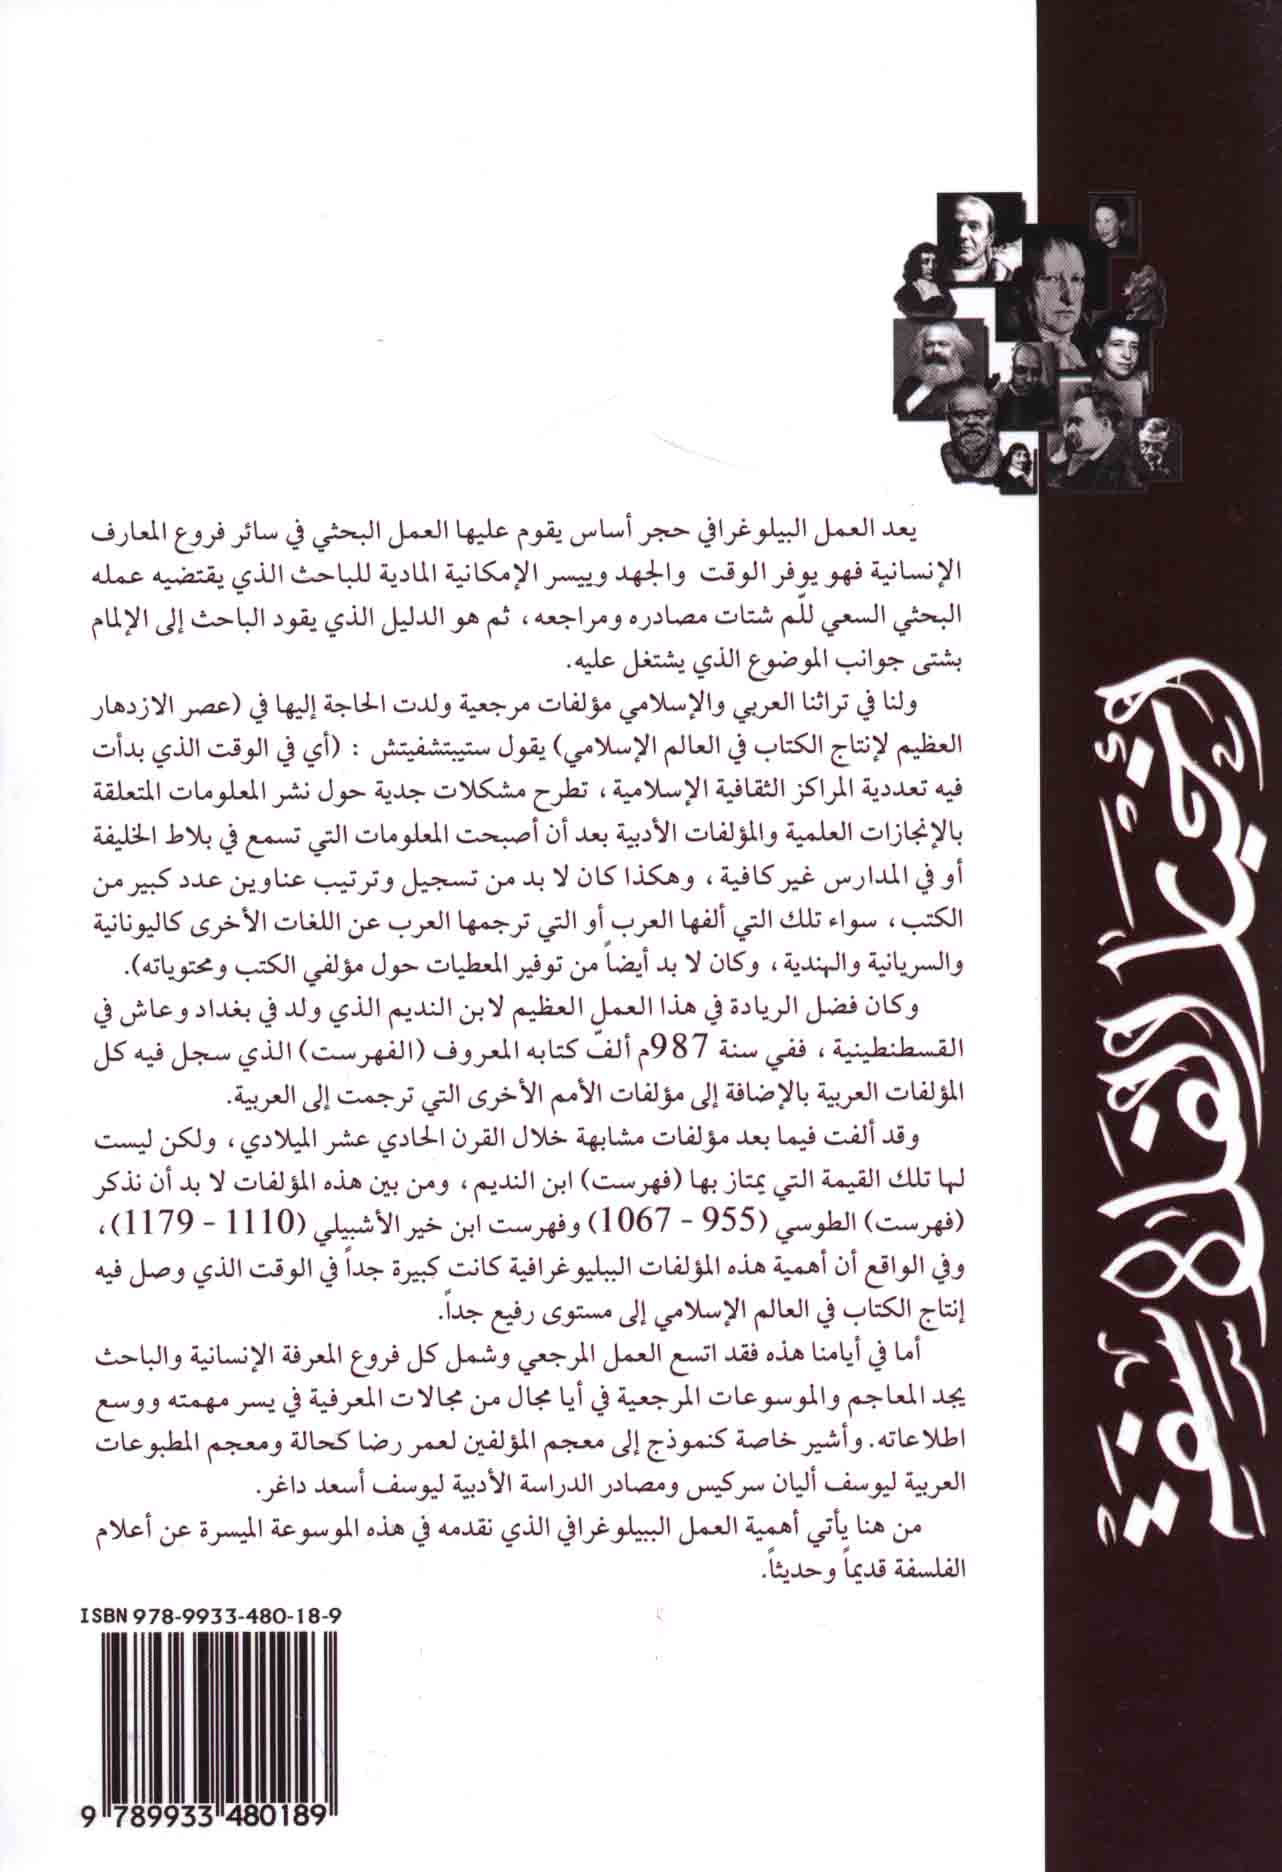 يعد العمل البيلوغرافي حجر أساس يقوم عليها العمل البحثي في سائر فروع المعارف
الإنسانية فهو يوفر الوقت والجهد وييسر الإمكانية المادية للباحث الذي يقتضيه عمله
البحثي السعي للّم شتات مصادره ومراجعه، ثم هو الدليل الذي يقود الباحث إلى الإلمام
بشتى جوانب الموضوع الذي يشتغل عليه.
ولنا في تراثنا العربي والإسلامي مؤلفات مرجعية ولدت الحاجة إليها في (عصر الازدهار
العظيم لإنتاج الكتاب في العالم الإسلامي) يقول ستيبتشفيتش : (أي في الوقت الذي بدأت
فيه تعددية المراكز الثقافية الإسلامية، تطرح مشكلات جدية حول نشر المعلومات المتعلقة
بالإنجازات العلمية والمؤلفات الأدبية بعد أن أصبحت المعلومات التي تسمع في بلاط الخليفة
أو في المدارس غير كافية، وهكذا كان لا بد من تسجيل وترتيب عناوين عدد كبير من
الكتب، سواء تلك التي ألفها العرب أو التي ترجمها العرب عن اللغات الأخرى كاليونانية
والسريانية والهندية، وكان لا بد أيضاً من توفير المعطيات حول مؤلفي الكتب ومحتوياته).
وكان فضل الريادة في هذا العمل العظيم لابن النديم الذي ولد في بغداد وعاش في
القسطنطينية، ففي سنة 987م ألفّ كتابه المعروف (الفهرست) الذي سجل فيه كل
المؤلفات العربية بالإضافة إلى مؤلفات الأمم الأخرى التي ترجمت إلى العربية.
وقد ألفت فيما بعد مؤلفات مشابهة خلال القرن الحادي عشر الميلادي، ولكن ليست
لها تلك القيمة التي يمتاز بها (فهرست) ابن النديم، ومن بين هذه المؤلفات لا بد أن نذكر
(فهرست) الطوسي (955 - 1067) وفهرست ابن خير الأشبيلي (1110 - 1179)،
وفي الواقع أن أهمية هذه المؤلفات الببليوغرافية كانت كبيرة جداً في الوقت الذي وصل فيه
إنتاج الكتاب في العالم الإسلامي إلى مستوى رفيع جداً.
أما في أيامنا هذه فقد اتسع العمل المرجعي وشمل كل فروع المعرفة الإنسانية والباحث
يجد المعاجم والموسوعات المرجعية في أيا مجال من مجالات المعرفية في يسر مهمته ووسع
اطلاعاته. وأشير خاصة كنموذج إلى معجم المؤلفين لعمر رضا كحالة ومعجم المطبوعات
العربية ليوسف أليان سركيس ومصادر الدراسة الأدبية ليوسف أسعد داغر.
من هنا يأتي أهمية العمل الببيلوغرافي الذي نقدمه في هذه الموسوعة الميسرة عن أعلام
الفلسفة قديماً وحديثاً.
ISBN 978-9933-480-18-9
9 789933 480189
الفلاسفة